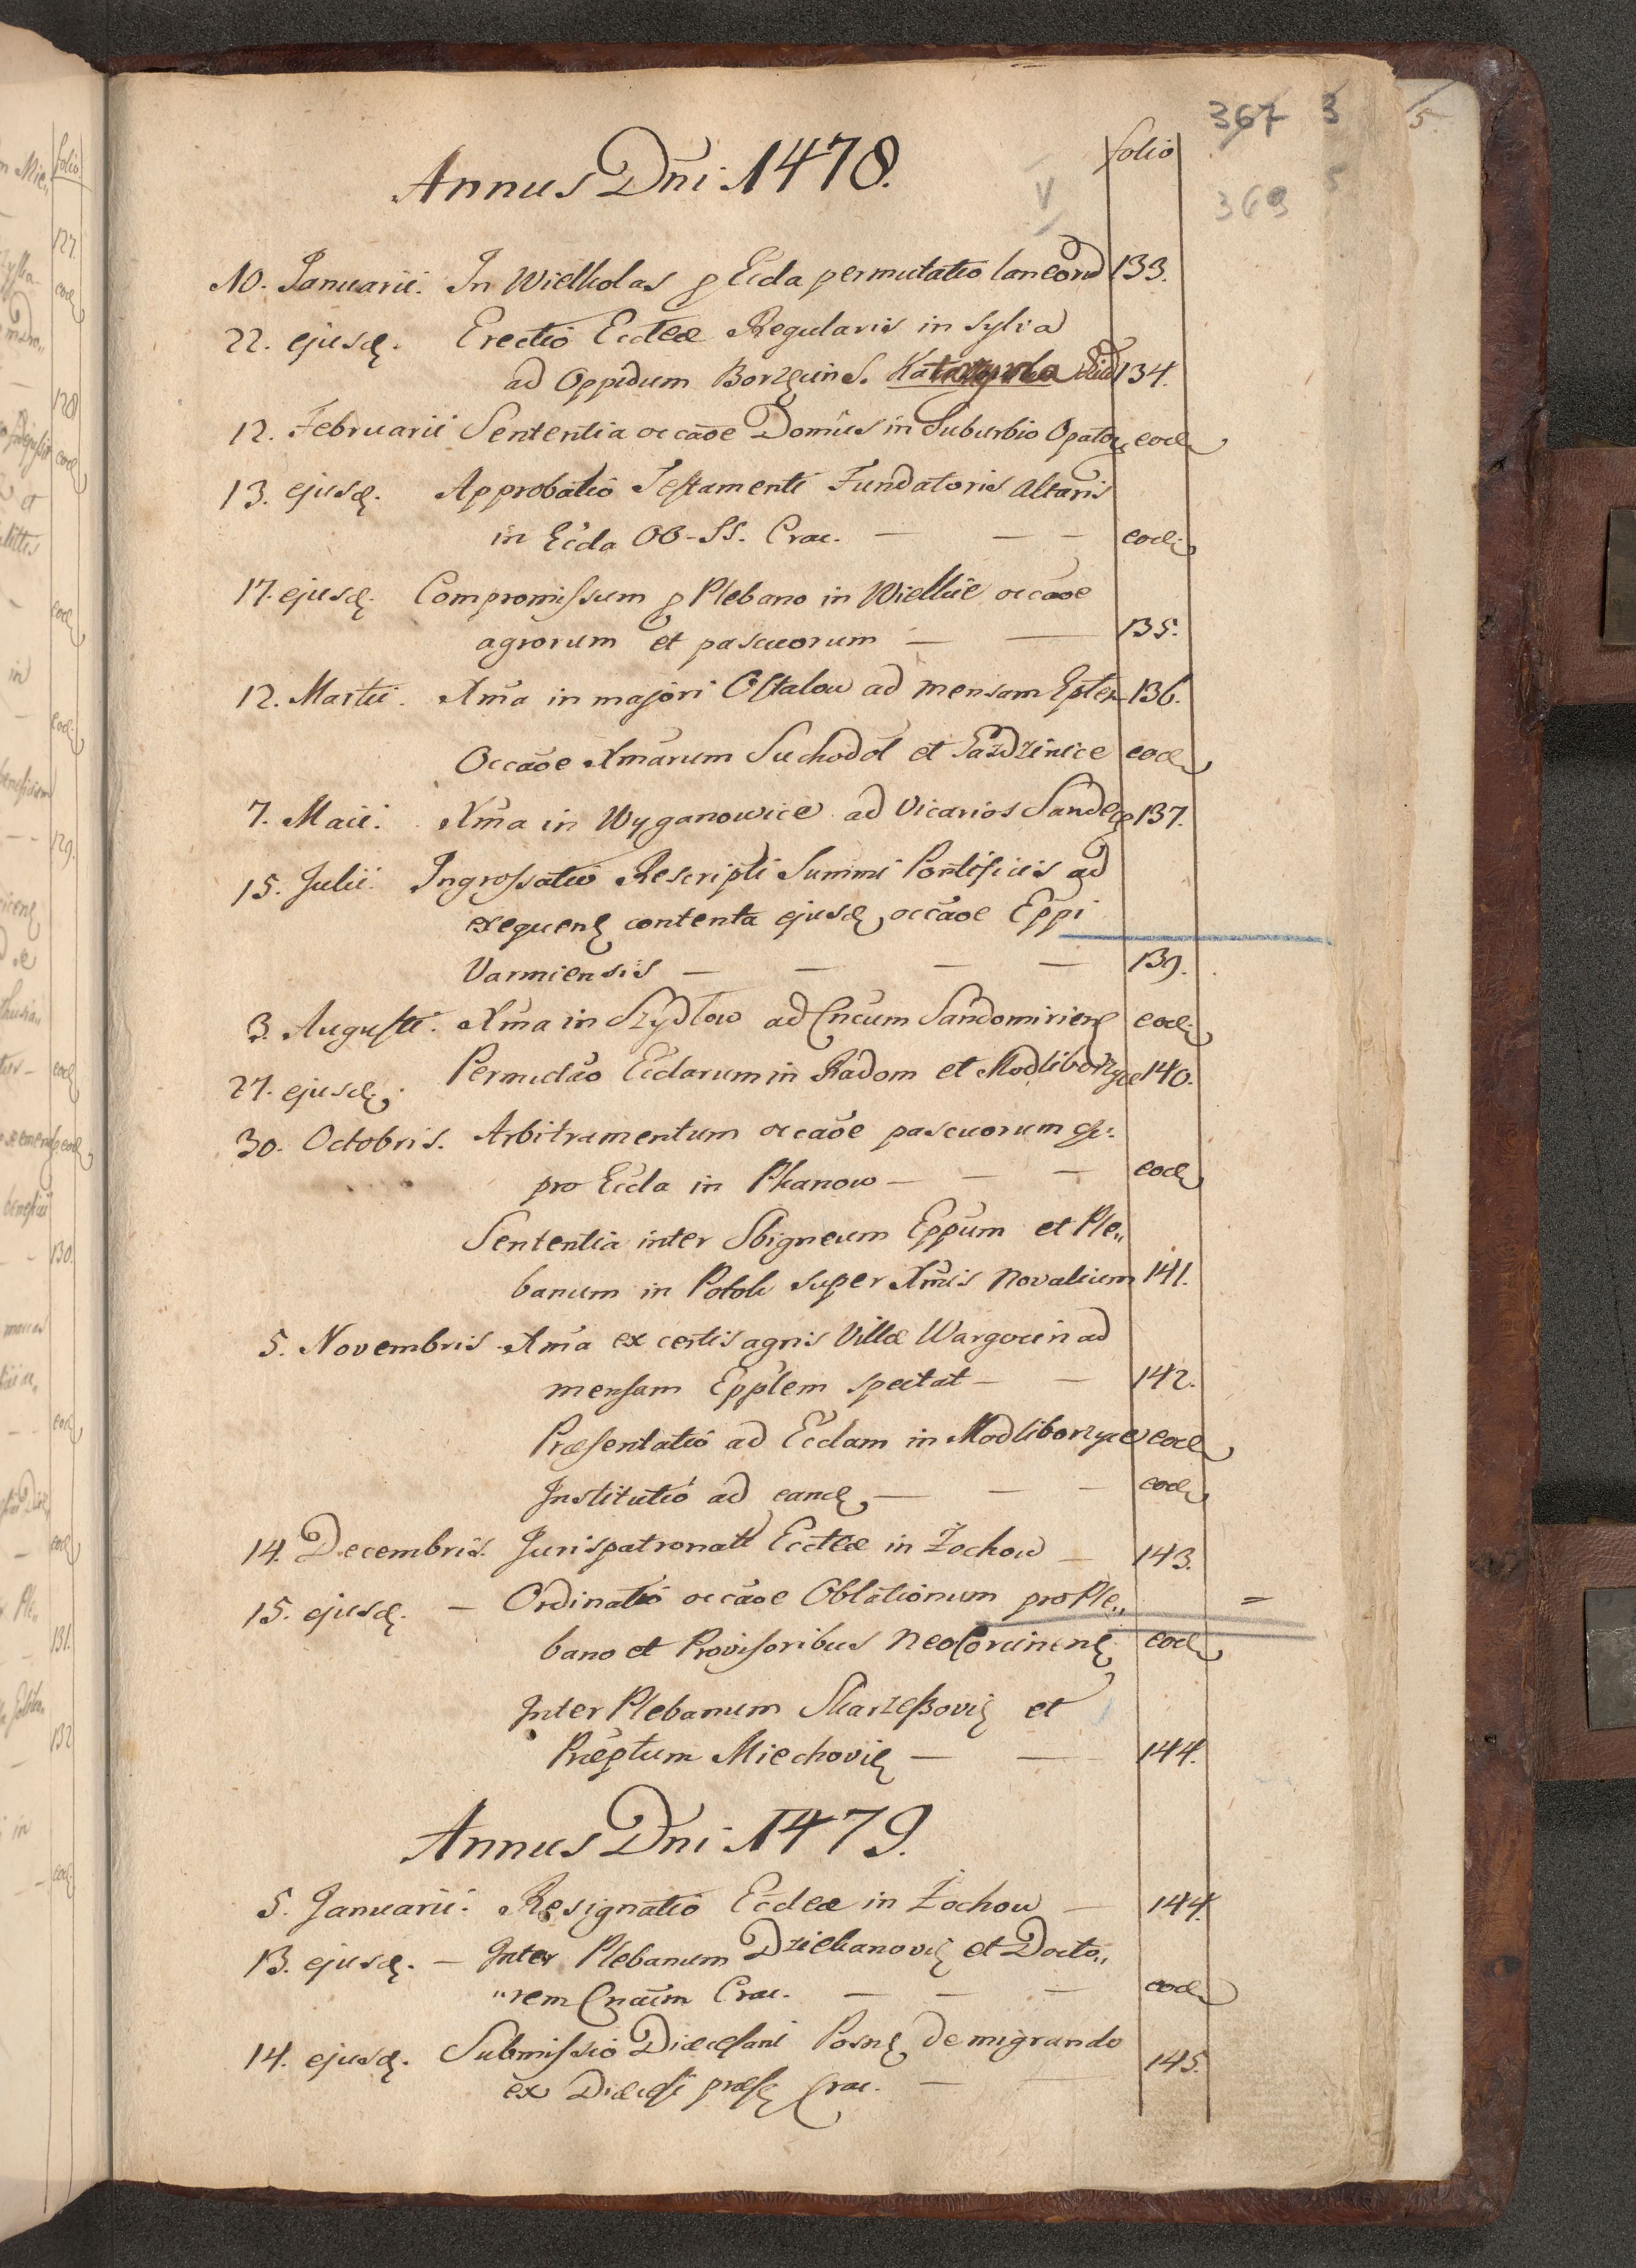 367 3 5.
369 5
V
folio
Annus Dñi 1478.
10. Januarii. In Wielkolas p Ecĉla permutatio laneorū 133.
22. ejusd. Erectio Eccleæ Regularis in sylva
ad Oppidum Borzęcin S. 134.
12. Februarii Sententia occãoe Domus in Suburbio Opatov. eod.
13. ejusd. Approbatio Testamenti Fundatoris Altaris
in Eccla OO-SS. Crac. — — — eod.
17. ejusd. Compromissum p Plebano in Wielkie occãoe
agrorum et pascuorum — — 135.
12. Martii. Xma in majori Ostalow ad mensam Eplem 136.
Occãoe Xmarum Suchodol et Gazdzinice eod.
7. Maii. Xma in Wyganowice ad Vicarios Sandec. 137.
15. Julii. Ingrossatio Rescripti Summi Pontificis ad
exequend contenta ejusd, occãoe Eppi
Varmiensis — — — — 139.
3. Augusti. Xma in Szydlow ad Cñcum Sandomirien eod.
27. ejusd. Permutão Ecclarum in Radom et Modliborzyce 140.
30. Octobris. Arbitramentum occãoe pascuorum
pro Eccla in Pkanow — — — eod.
Sententia inter Sbigneum Eppum et Ple„
banum in Potok super Xmis Novalium 141.
5. Novembris. Xma ex certis agris Villæ Wargocin ad
mensam Epplem spectat — — 142.
Præsentatio ad Ecclam in Modliborzyce eod.
Institutio ad eamd, — — — eod.
14. Decembris. Jurispatronatt Eccleæ in Zochow — 143.
15. ejusd. — Ordinatio occãoe Oblationum pro Ple„ =
bano et Provisoribus NeoCorcinen eod.
Inter Plebanum Skarzeßovi et
Præptum Miechovi — — 144.
Annus Dni 1479.
5. Januarii. Resignatio Eccleæ in Zochow — 144.
13. ejusd. — Inter Plebanum Dziekanovi et Docto„
„rem Cñcum Crac. — — — eod.
14. ejusd. Submissio Diœcesani Posn de migrando
ex Diœcesi præs Crac. — — 145.